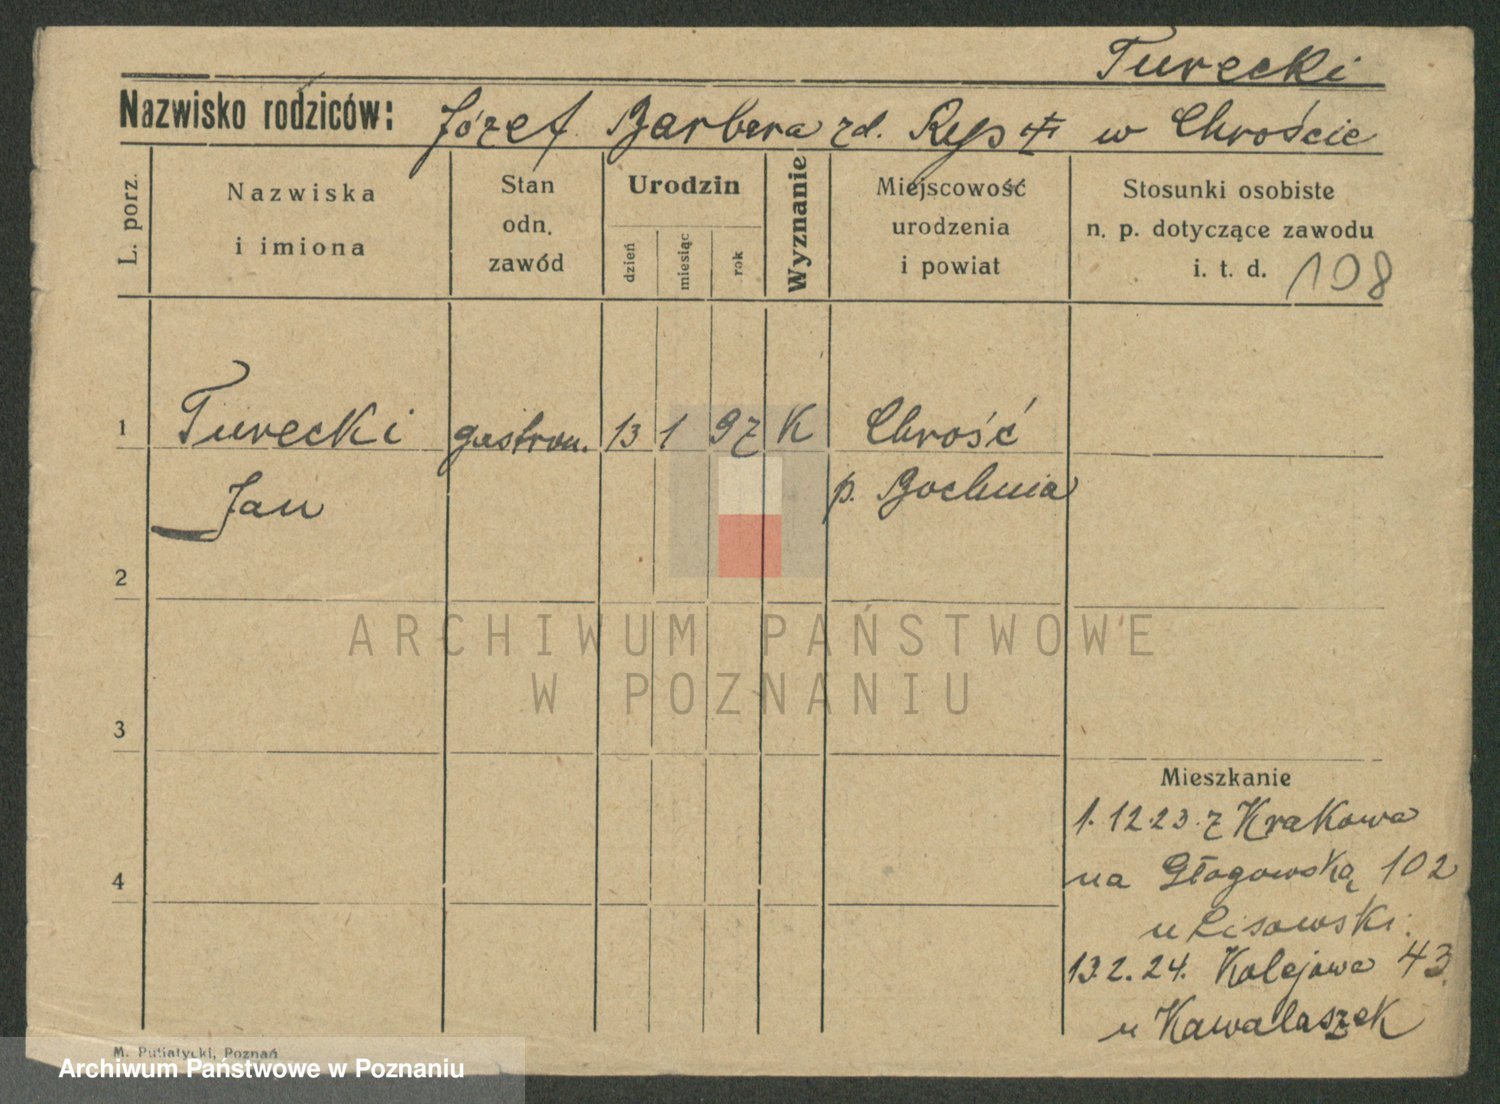 Turecki
Nazwisko rodziców: Józef Barbera zd. Ryś w Chroście
L. porz.
Nazwiska
i imiona
Stan
odn.
zawód
Urodzin
dzień
miesiąc
rok
Wyznanie
Miejscowość
urodzenia
i powiat
Stosunki osobiste
n. p. dotyczące zawodu
i. t. d. 108
1 Turecki gastron. 13 1 97 K Chrość
Jan p. Bochnia
2
3
4
Mieszkanie
1.12.23. z Krakowa
na Głogowską 102
u Lisowski.
13.2.24. Kolejowa 43.
u Kawalaszek
M. Putiatycki, Poznań
ARCHIWUM PAŃSTWOWE
W POZNANIU
Archiwum Państwowe w Poznaniu